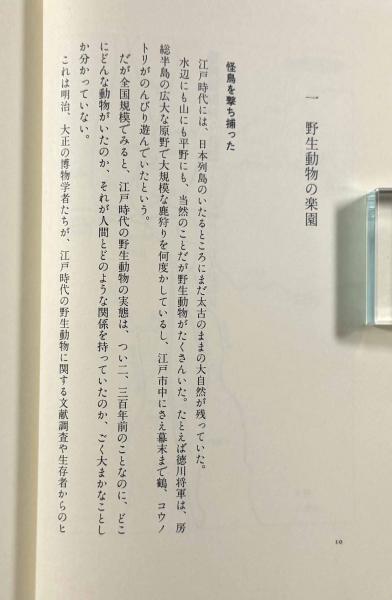 一　野生動物の楽園
怪鳥を撃ち捕った
江戸時代には、日本列島のいたるところにまだ太古のままの大自然が残っていた。
水辺にも山にも平野にも、当然のことだが野生動物がたくさんいた。たとえば徳川将軍は、房
総半島の広大な原野で大規模な鹿狩りを何度かしているし、江戸市中にさえ幕末まで鶴、コウノ
トリがのんびり遊んでいたという。
だが全国規模でみると、江戸時代の野生動物の実態は、つい二、三百年前のことなのに、どこ
にどんな動物がいたのか、それが人間とどのような関係を持っていたのか、ごく大まかなことし
か分かっていない。
これは明治、大正の博物学者たちが、江戸時代の野生動物に関する文献調査や生存者からのヒ
10